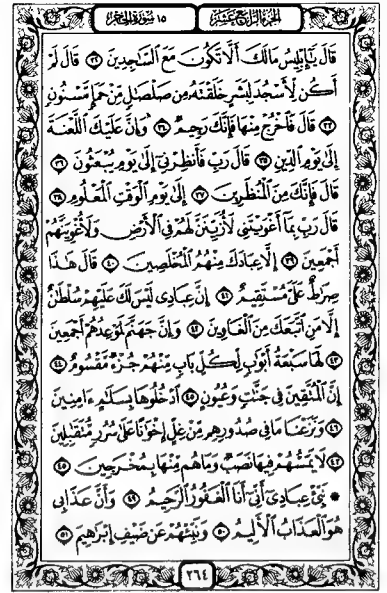 الجزء الرابع عشر ١٥ سورة الحجر
قَالَ يَٰٓإِبْلِيسُ مَالَكَ أَلَّا تَكُونَ مَعَ ٱلسَّٰجِدِينَ ٣٢ قَالَ لَمْ
أَكُن لِّأَسْجُدَ لِبَشَرٍ خَلَقْتَهُۥ مِن صَلْصَٰلٍ مِّنْ حَمَإٍ مَّسْنُونٍ
٣٣ قَالَ فَٱخْرُجْ مِنْهَا فَإِنَّكَ رَجِيمٌ ٣٤ وَإِنَّ عَلَيْكَ ٱللَّعْنَةَ
إِلَىٰ يَوْمِ ٱلدِّينِ ٣٥ قَالَ رَبِّ فَأَنظِرْنِىٓ إِلَىٰ يَوْمِ يُبْعَثُونَ ٣٦
قَالَ فَإِنَّكَ مِنَ ٱلْمُنظَرِينَ ٣٧ إِلَىٰ يَوْمِ ٱلْوَقْتِ ٱلْمَعْلُومِ ٣٨
قَالَ رَبِّ بِمَآ أَغْوَيْتَنِى لَأُزَيِّنَنَّ لَهُمْ فِى ٱلْأَرْضِ وَلَأُغْوِيَنَّهُمْ
أَجْمَعِينَ ٣٩ إِلَّا عِبَادَكَ مِنْهُمُ ٱلْمُخْلَصِينَ ٤٠ قَالَ هَٰذَا
صِرَٰطٌ عَلَىَّ مُسْتَقِيمٌ ٤١ إِنَّ عِبَادِى لَيْسَ لَكَ عَلَيْهِمْ سُلْطَٰنٌ
إِلَّا مَنِ ٱتَّبَعَكَ مِنَ ٱلْغَاوِينَ ٤٢ وَإِنَّ جَهَنَّمَ لَمَوْعِدُهُمْ أَجْمَعِينَ
٤٣ لَهَا سَبْعَةُ أَبْوَٰبٍ لِّكُلِّ بَابٍ مِّنْهُمْ جُزْءٌ مَّقْسُومٌ ٤٤
إِنَّ ٱلْمُتَّقِينَ فِى جَنَّٰتٍ وَعُيُونٍ ٤٥ ٱدْخُلُوهَا بِسَلَٰمٍ ءَامِنِينَ
٤٦ وَنَزَعْنَا مَا فِى صُدُورِهِم مِّنْ غِلٍّ إِخْوَٰنًا عَلَىٰ سُرُرٍ مُّتَقَٰبِلِينَ
٤٧ لَا يَمَسُّهُمْ فِيهَا نَصَبٌ وَمَا هُم مِّنْهَا بِمُخْرَجِينَ ٤٨
* نَبِّئْ عِبَادِىٓ أَنِّىٓ أَنَا ٱلْغَفُورُ ٱلرَّحِيمُ ٤٩ وَأَنَّ عَذَابِى
هُوَ ٱلْعَذَابُ ٱلْأَلِيمُ ٥٠ وَنَبِّئْهُمْ عَن ضَيْفِ إِبْرَٰهِيمَ ٥١
٢٦٤